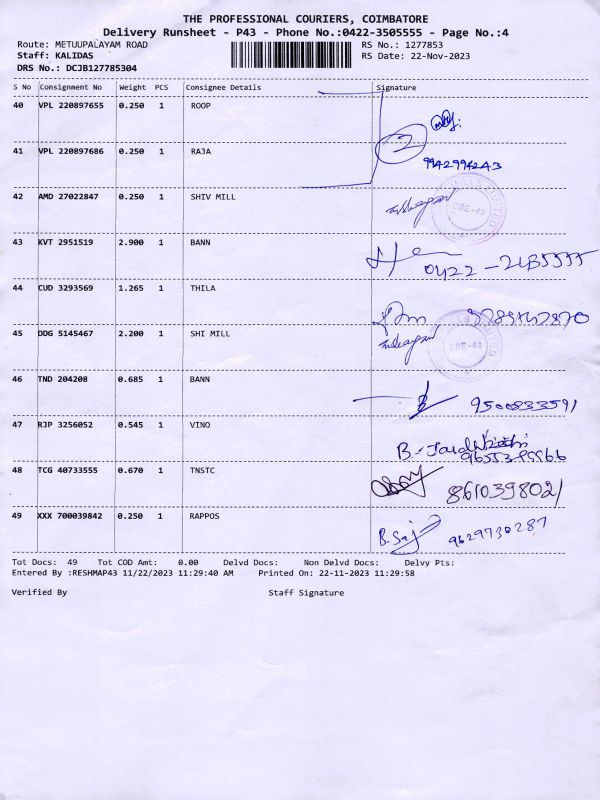 THE PROFESSIONAL COURIERS, COIMBATORE
Delivery Runsheet - P43 - Phone No.:0422-3505555 - Page No.:4
Route: METUUPALAYAM ROAD RS No.: 1277853
Staff: KALIDAS RS Date: 22-Nov-2023
DRS No.: DCJB127785304
S No Consignment No Weight PCS Consignee Details Signature
40 VPL 220897655 0.250 1 ROOP
2
41 VPL 220897686 0.250 1 RAJA 9942994243
42 AMD 27022847 0.250 1 SHIV MILL
CBE-43
43 KVT 2951519 2.900 1 BANN
44 CUD 3293569 1.265 1 THILA
45 DDG 5145467 2.200 1 SHI MILL
CBE-43
46 TND 204208 0.685 1 BANN 9500833591
47 RJP 3256052 0.545 1 VINO
48 TCG 40733555 0.670 1 TNSTC 8610398021
49 XXX 700039842 0.250 1 RAPPOS 9629730287
Tot Docs: 49 Tot COD Amt: 0.00 Delvd Docs: Non Delvd Docs: Delvy Pts:
Entered By :RESHMAP43 11/22/2023 11:29:40 AM Printed On: 22-11-2023 11:29:58
Verified By Staff Signature